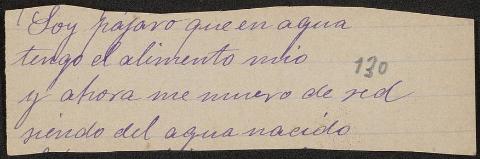 Soy pajaro que en agua
tengo el alimento mio
130
y ahora me muero de sed
siendo del agua nacido